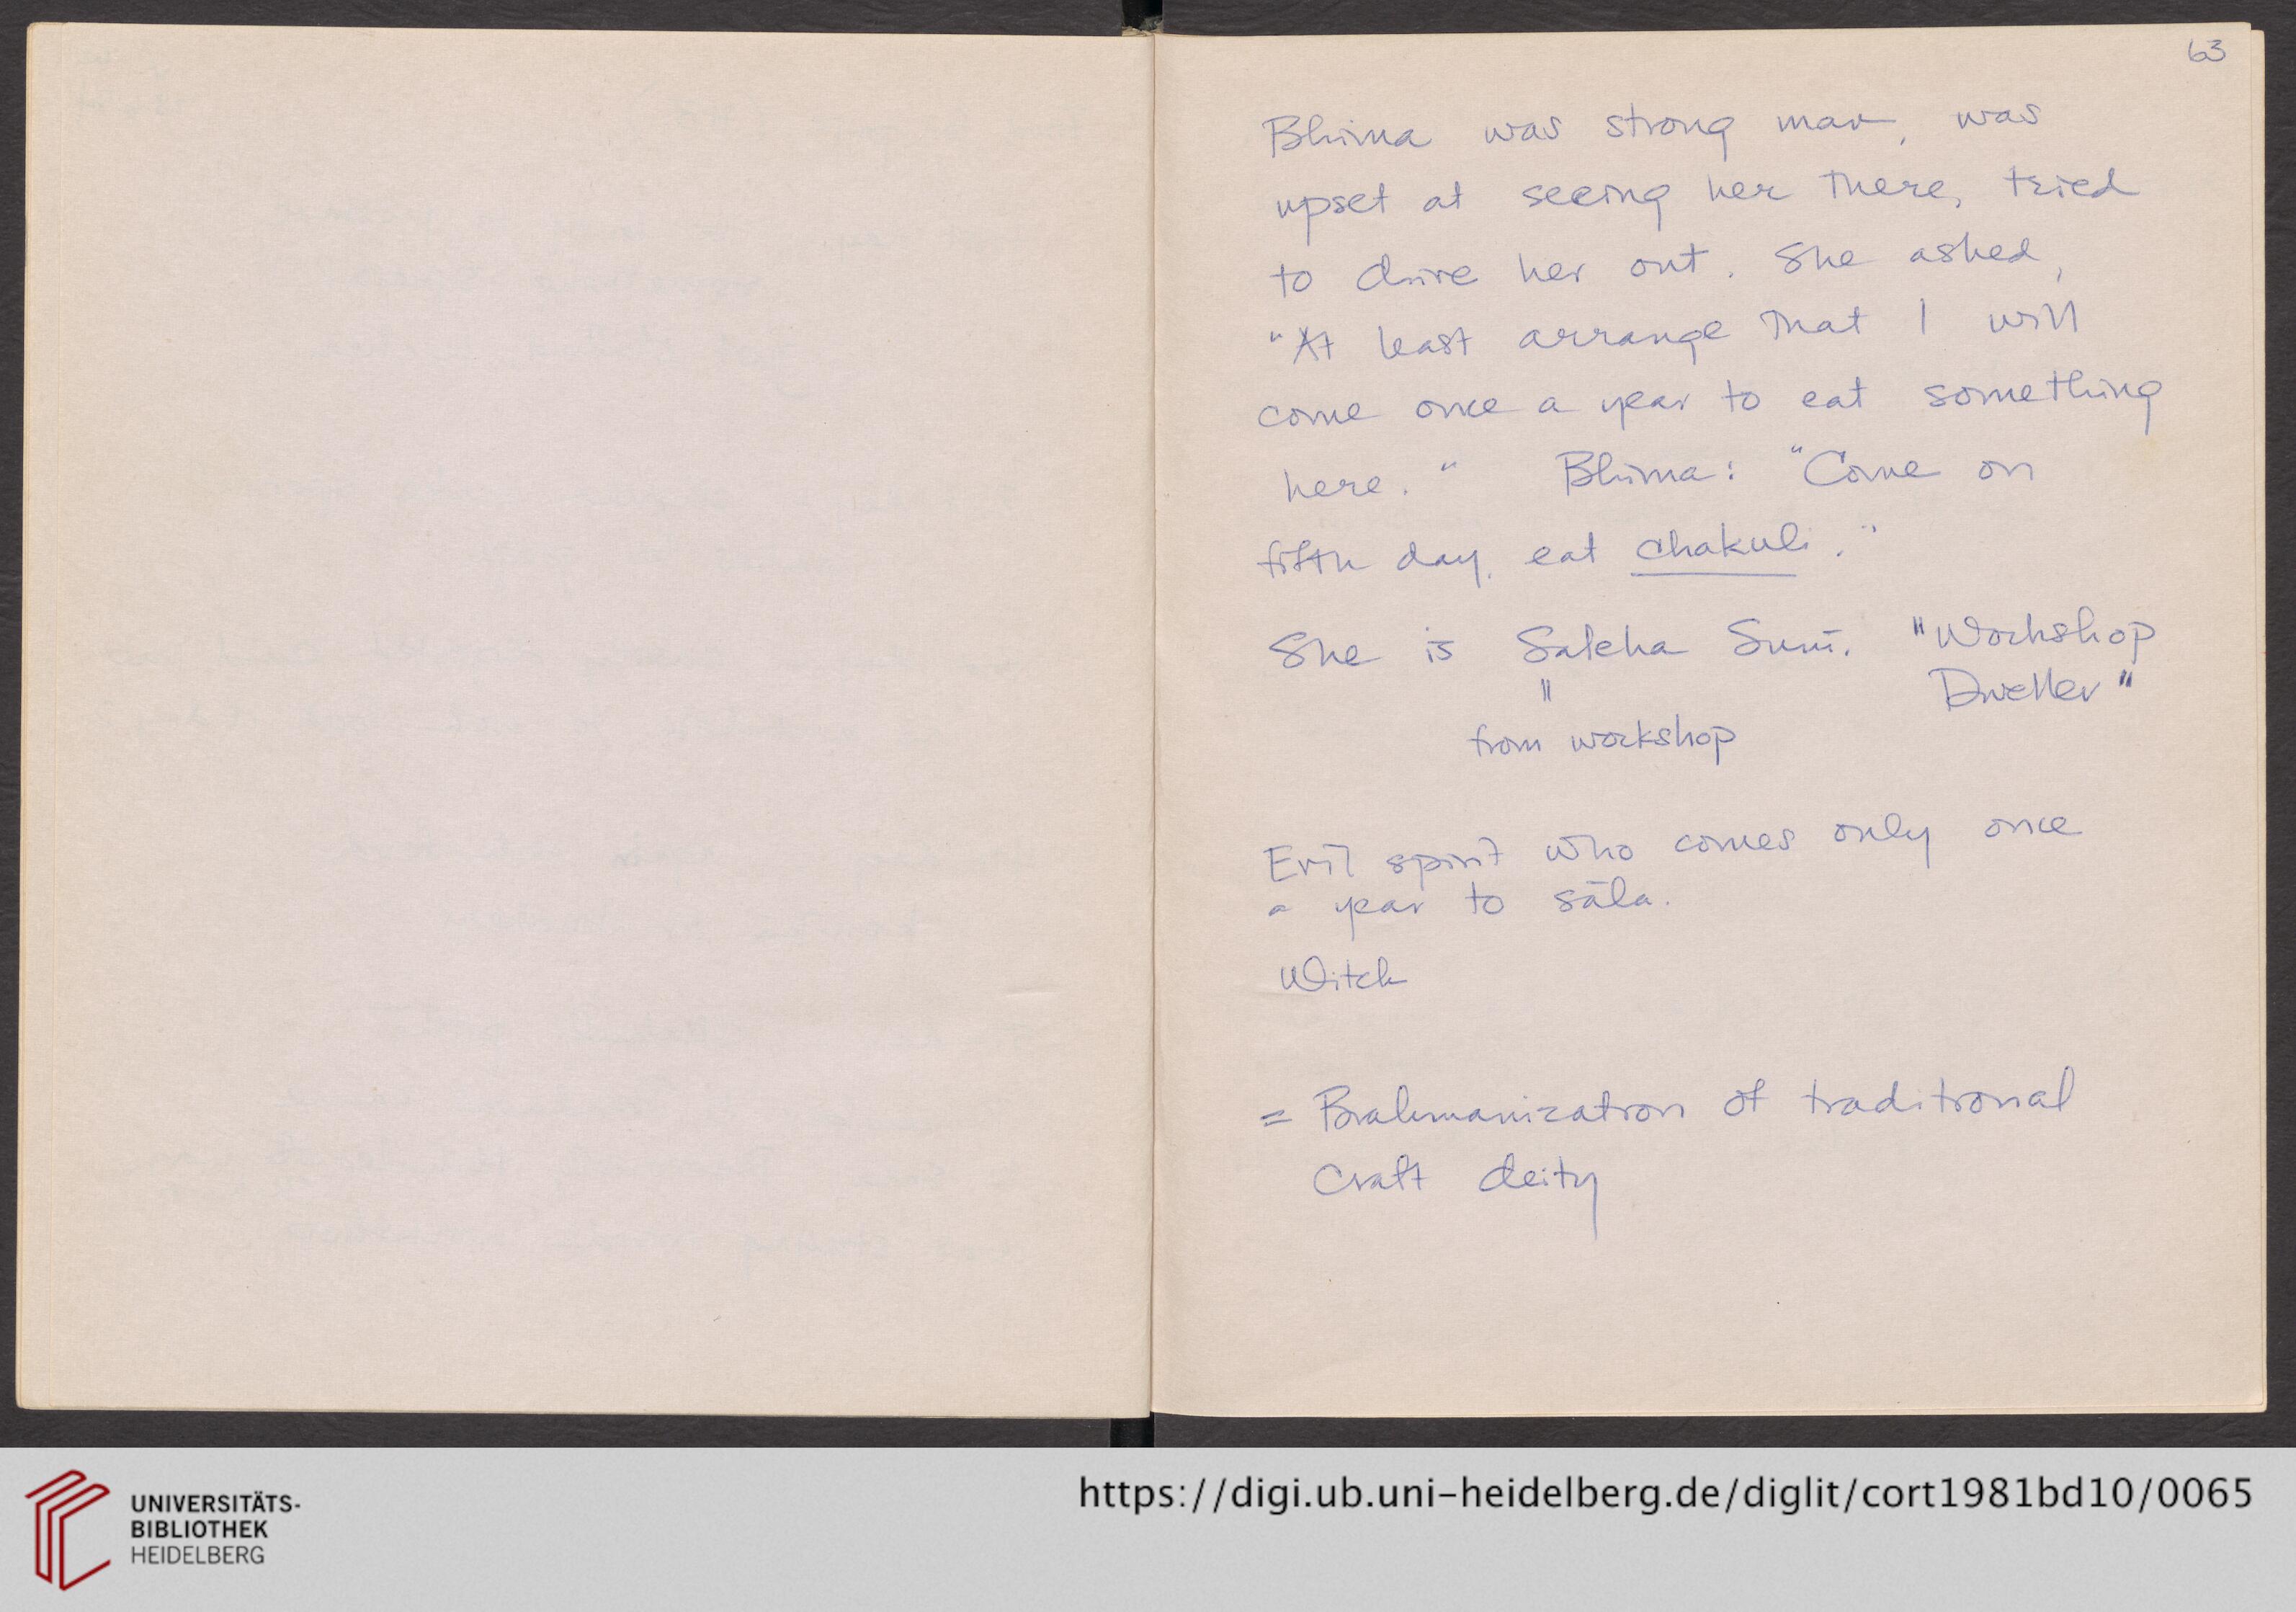 63
Bhima was strong man, was
upset at seeing her there, tried
to drive her out. She asked,
"At least arrange that I will
come once a year to eat something
here." Bhima: "Come on
fifth day, eat chakuli."
She is Saleha Suni. "Workshop
Dweller"
"
from workshop
Evil spirit who comes only once
a year to sāla.
Witch
= Brahmanization of traditional
craft deity
UNIVERSITÄTS-
BIBLIOTHEK
HEIDELBERG
https://digi.ub.uni-heidelberg.de/diglit/cort1981bd10/0065